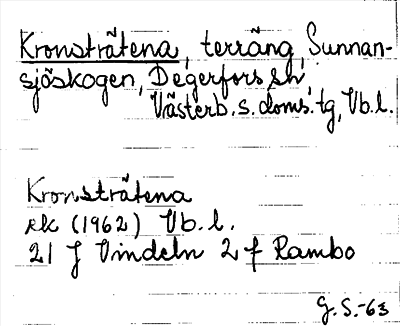 Kronsträtena, terräng, Sunnan-
sjöskogen, Degerfors sn
Västerb. s. doms. tg, Vb. l.
Kronsträtena
ek (1962) Vb. l.
21 J Vindeln 2 f Rambo
G. S. -63